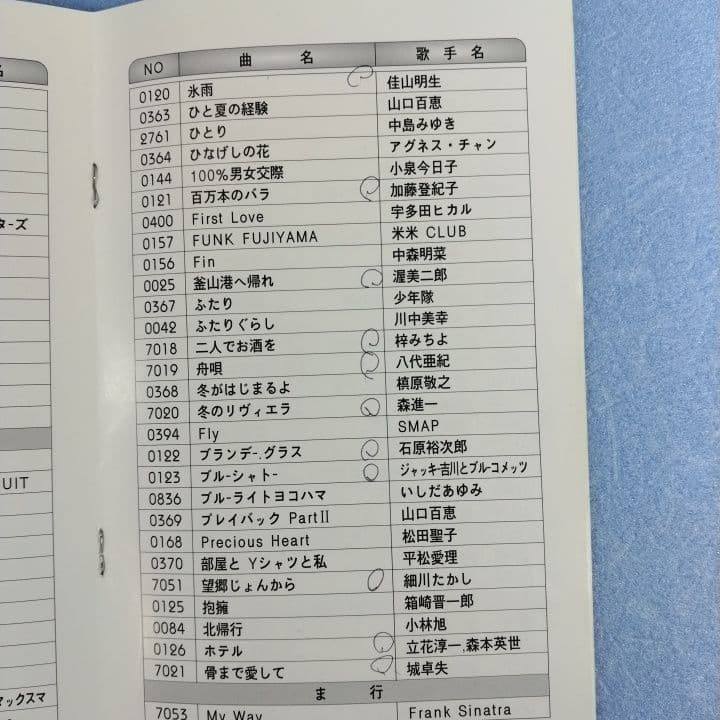 名
ターズ
UIT
マックスマ
NO 曲 名 歌 手 名
0120 氷雨 佳山明生
0363 ひと夏の経験 山口百恵
2761 ひとり 中島みゆき
0364 ひなげしの花 アグネス・チャン
0144 100%男女交際 小泉今日子
0121 百万本のバラ 加藤登紀子
0400 First Love 宇多田ヒカル
0157 FUNK FUJIYAMA 米米 CLUB
0156 Fin 中森明菜
0025 釜山港へ帰れ 渥美二郎
0367 ふたり 少年隊
0042 ふたりぐらし 川中美幸
7018 二人でお酒を 梓みちよ
7019 舟唄 八代亜紀
0368 冬がはじまるよ 槙原敬之
7020 冬のリヴィエラ 森進一
0394 Fly SMAP
0122 ブランデー.グラス 石原裕次郎
0123 ブルーシャトー ジャッキー吉川とブルーコメッツ
0836 ブルーライトヨコハマ いしだあゆみ
0369 プレイバック PartⅡ 山口百恵
0168 Precious Heart 松田聖子
0370 部屋と Yシャツと私 平松愛理
7051 望郷じょんから 細川たかし
0125 抱擁 箱崎晋一郎
0084 北帰行 小林旭
0126 ホテル 立花淳一,森本英世
7021 骨まで愛して 城卓矢
ま 行
7053 My Way Frank Sinatra